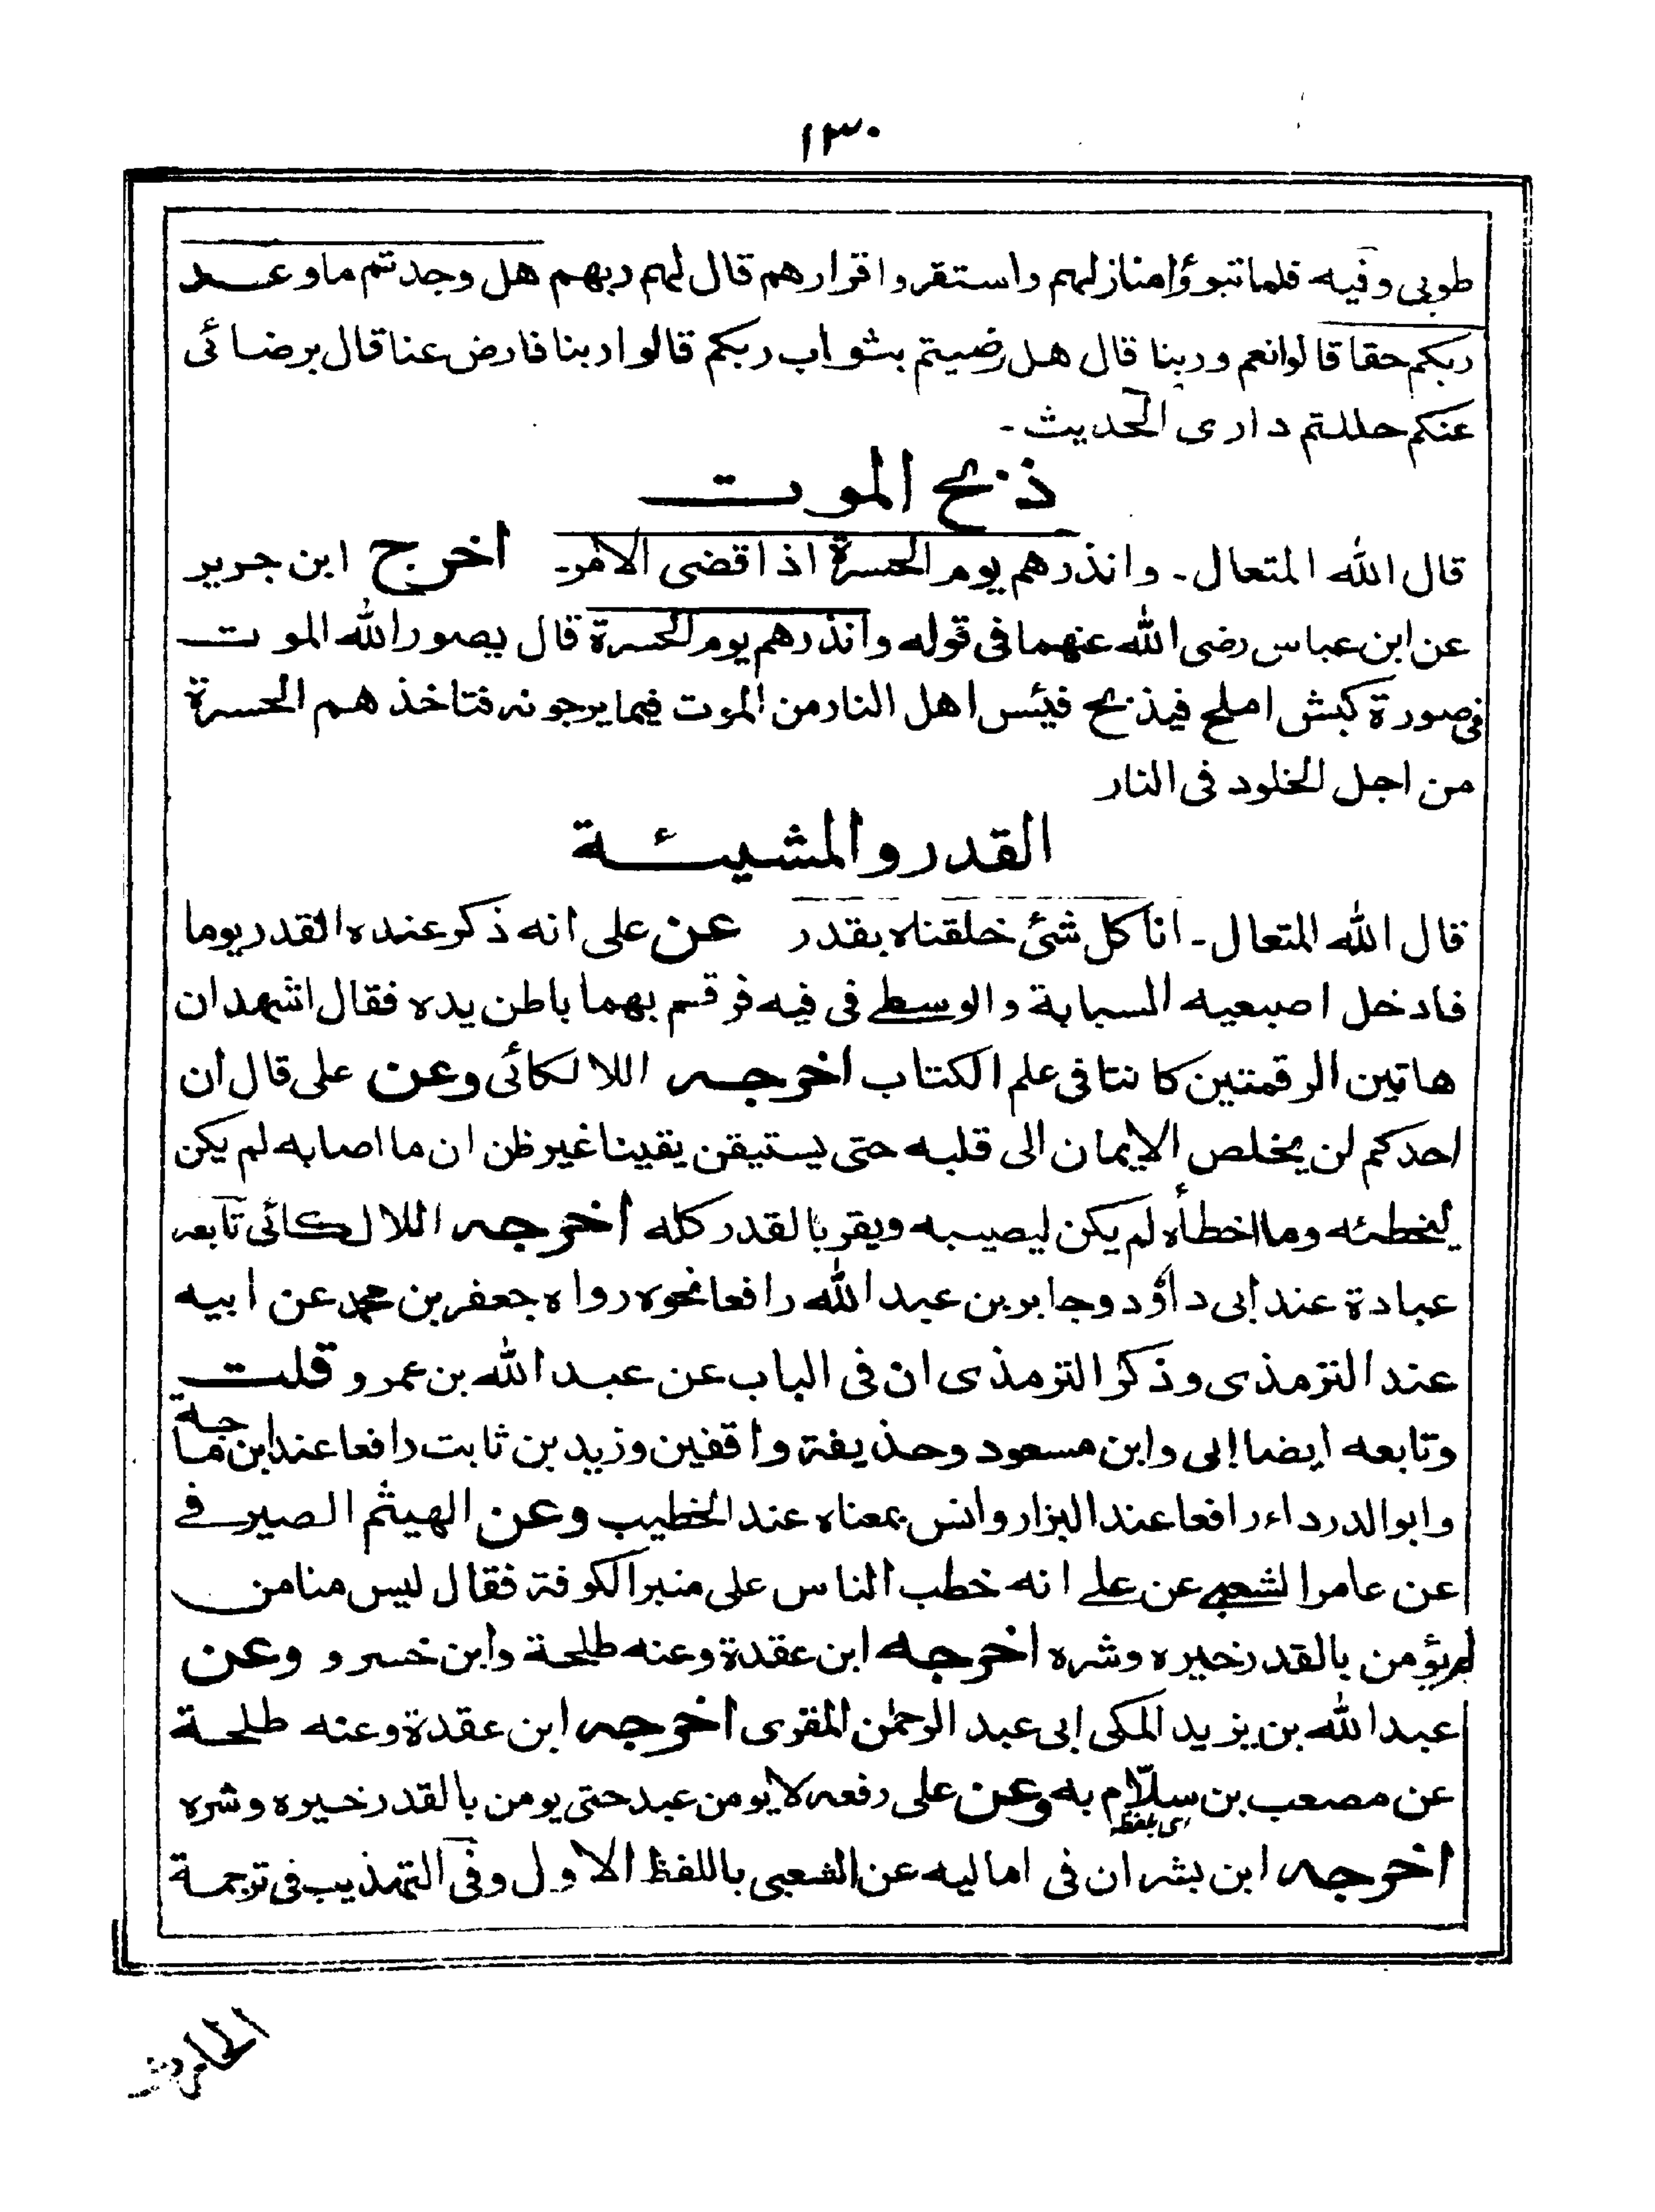 ١٣٠
طوبى وفيه فلما تبوؤا منازلهم واستقروا قرارهم قال لهم ربهم هل وجدتم ما وعد
ربكم حقا قالوا نعم وربنا قال هل رضيتم بثواب ربكم قالوا ربنا فارض عنا قال برضائى
عنكم حللتم دارى الحديث ـ
ذبح الموت
قال الله المتعال ـ وانذرهم يوم الحسرة اذا قضى الامر ـ اخرج ابن جرير
عن ابن عباس رضى الله عنهما فى قوله وانذرهم يوم الحسرة قال يصور الله الموت
فى صورة كبش املح فيذبح فيئس اهل النار من الموت فيما يرجونه فتاخذ هم الحسرة
من اجل الخلود فى النار
القدر والمشيئة
قال الله المتعال ـ انا كل شئ خلقناه بقدر عن على انه ذكر عنده القدر يوما
فادخل اصبعيه السبابة والوسطے فى فيه فرقسم بهما باطن يده فقال اشهد ان
هاتين الرقمتين كانتا فى علم الكتاب اخرجه اللالكائى وعن على قال ان
احدكم لن يخلص الايمان الى قلبه حتى يستيقن يقينا غير ظن ان ما اصابه لم يكن
ليخطئه وما اخطأه لم يكن ليصيبه ويقر بالقدر كله اخرجه اللالكائى تابعه
عبادة عند ابى داؤد وجابر بن عبد الله رافعا نحوه رواه جعفر بن محمد عن ابيه
عند الترمذى وذكر الترمذى ان فى الباب عن عبد الله بن عمرو قلت
وتابعه ايضا ابى وابن مسعود وحذيفة واقفين وزيد بن ثابت رافعا عند ابن ماجة
وابو الدرداء رافعا عند البزار وانس بمعناه عند الخطيب وعن الهيثم الصيرفے
عن عامر الشعبے عن علے انه خطب الناس على منبر الكوفة فقال ليس منا من
لم يؤمن بالقدر خيره وشره اخرجه ابن عقدة وعنه طلحة وابن خسرو وعن
عبد الله بن يزيد المكى ابى عبد الرحمٰن المقرى اخرجه ابن عقدة وعنه طلحة
عن مصعب بن سلّام به وعن على رفعه لا يومن عبد حتى يومن بالقدر خيره وشره
اخرجه ابن بشران فى اماليه عن الشعبى باللفظ الاول وفى التهذيب فى ترجمة